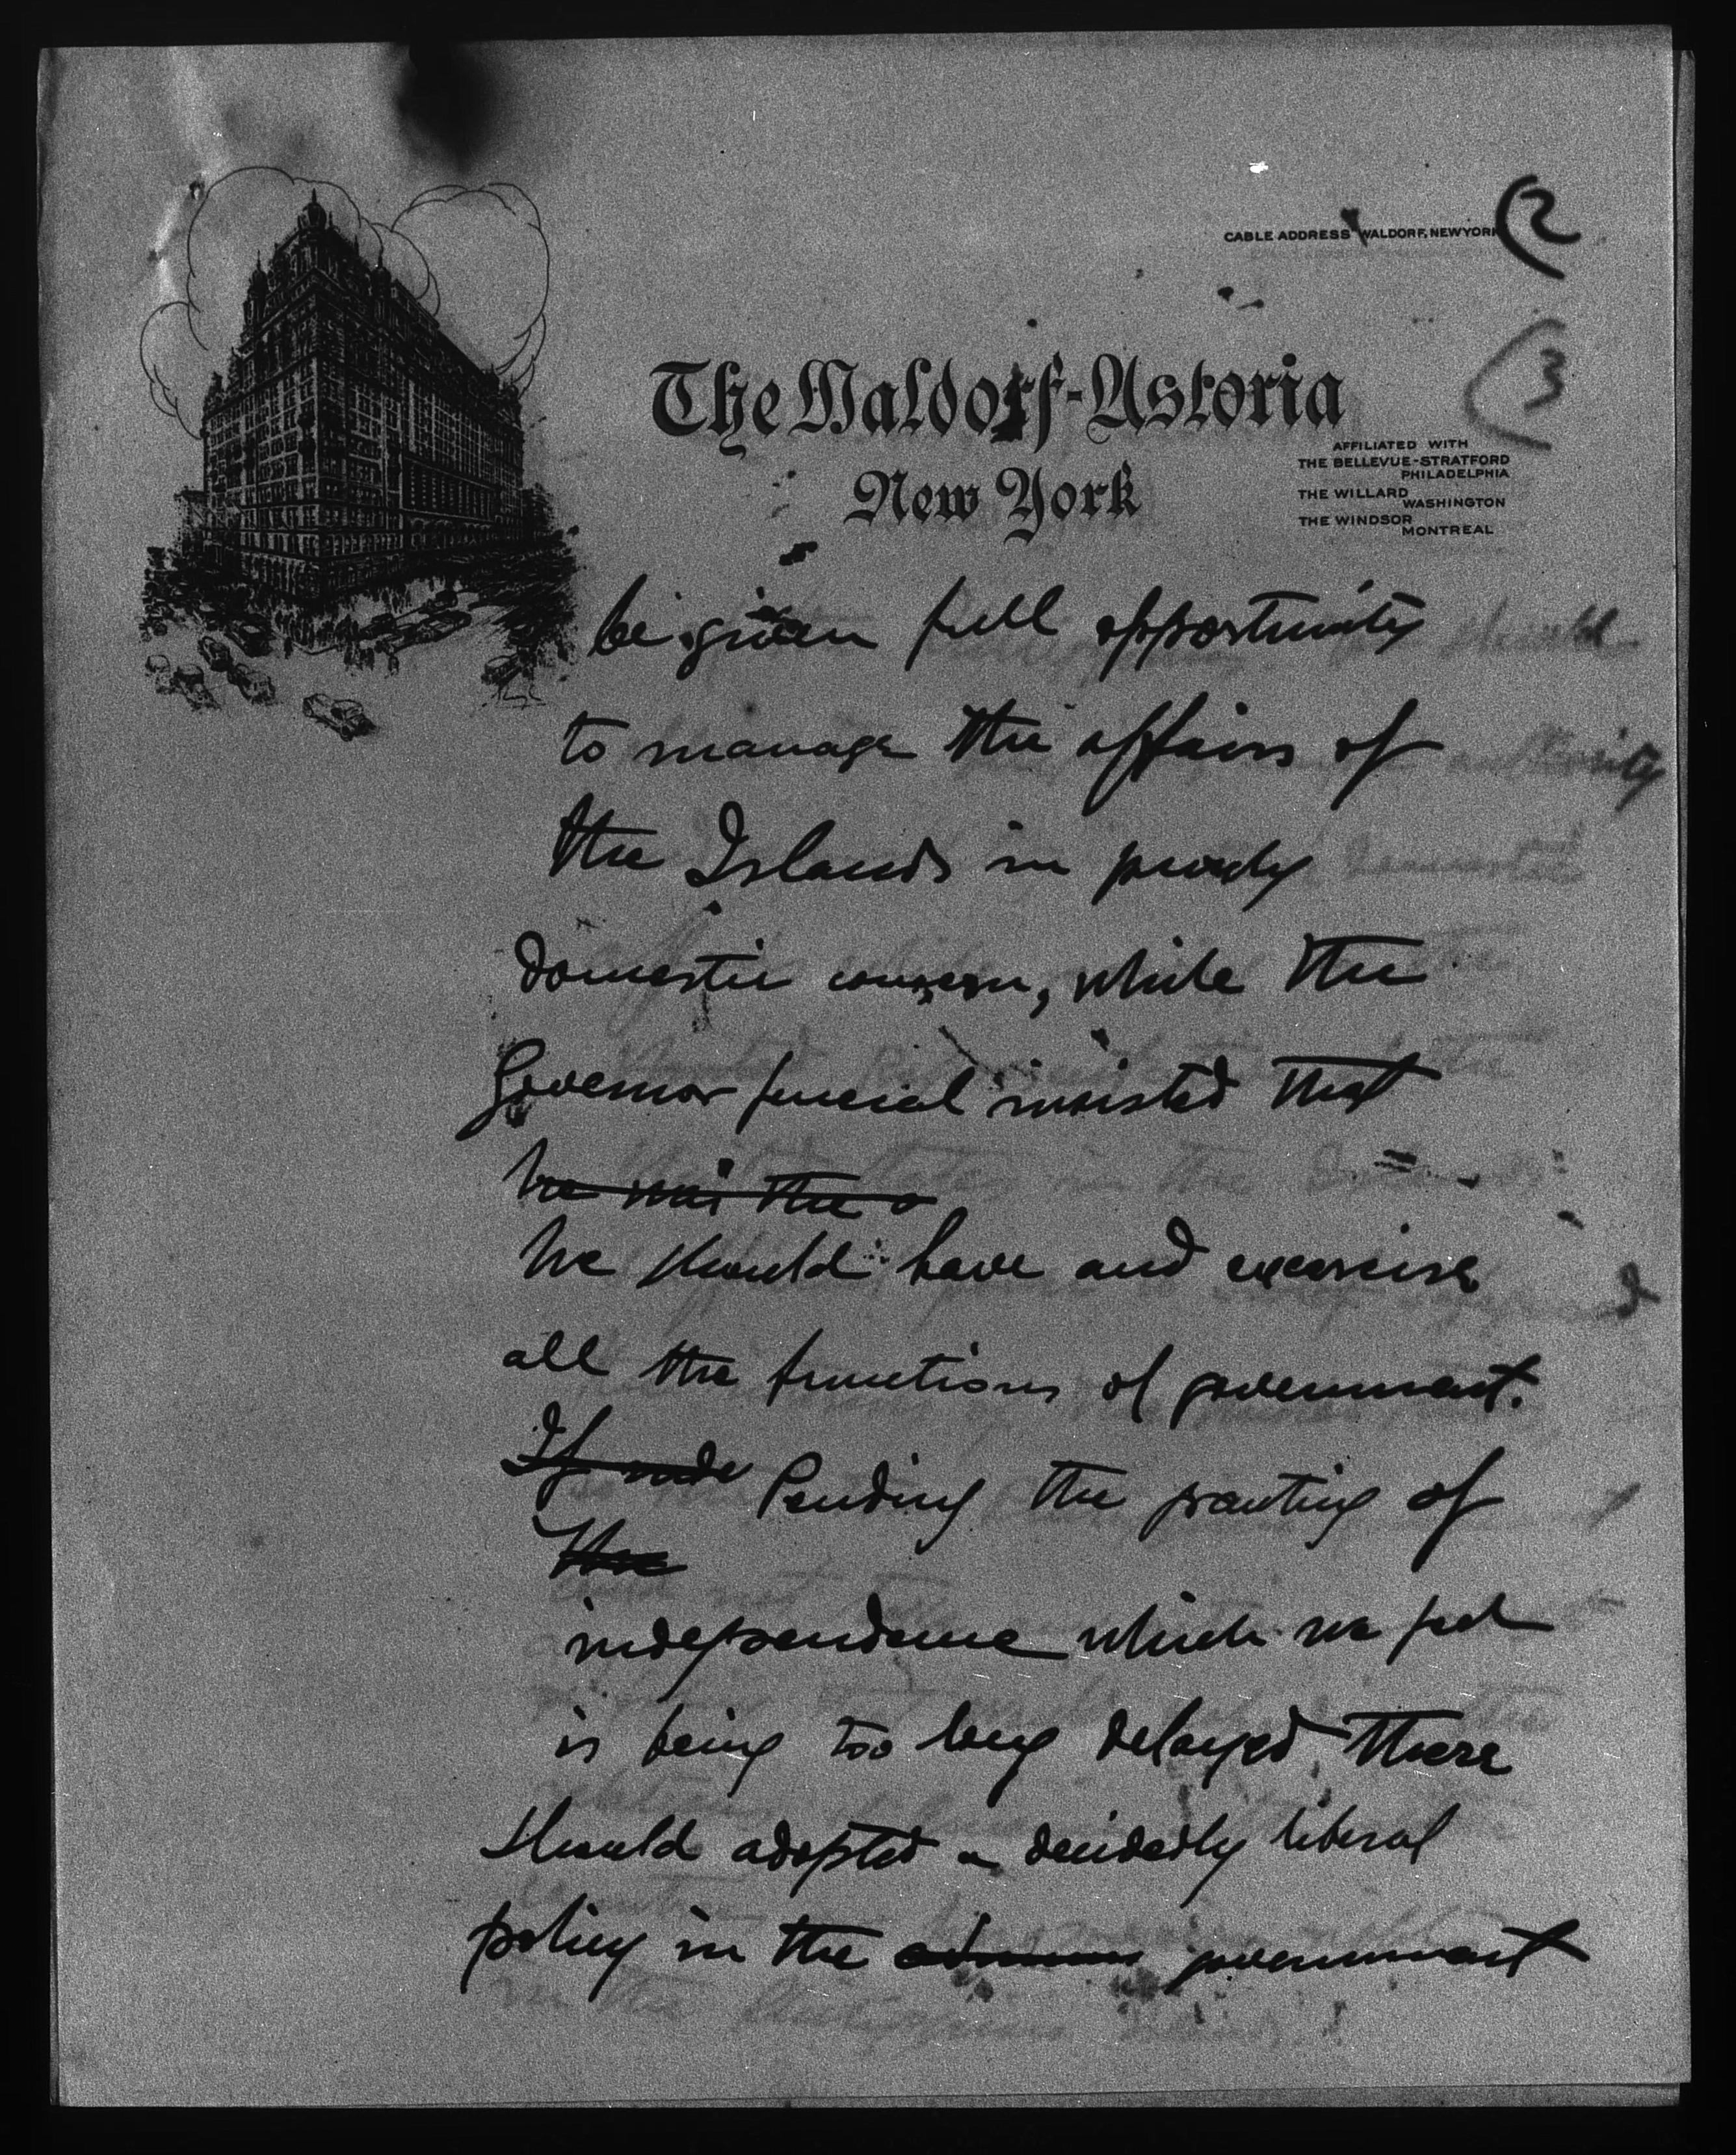 CABLE ADDRESS WALDORF, NEW YORK
(2
(3
The Waldorf-Astoria
New York
AFFILIATED WITH
THE BELLEVUE-STRATFORD
PHILADELPHIA
THE WILLARD
WASHINGTON
THE WINDSOR
MONTREAL
be given full opportunity
to manage the affairs of
the Islands in purely
domestic concern, while the
Governor General insisted that
he was the o
he should have and exercise
all the functions of government.
If Pending the granting of
the
independence which we feel
is being too long delayed there
should adopted a decidedly liberal
policy in the government